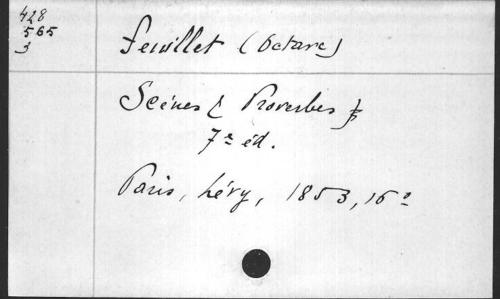 428
565
3
Feuillet (Octave)
Scènes & Proverbes
7e éd.
Paris, Lévy, 1853, 16°